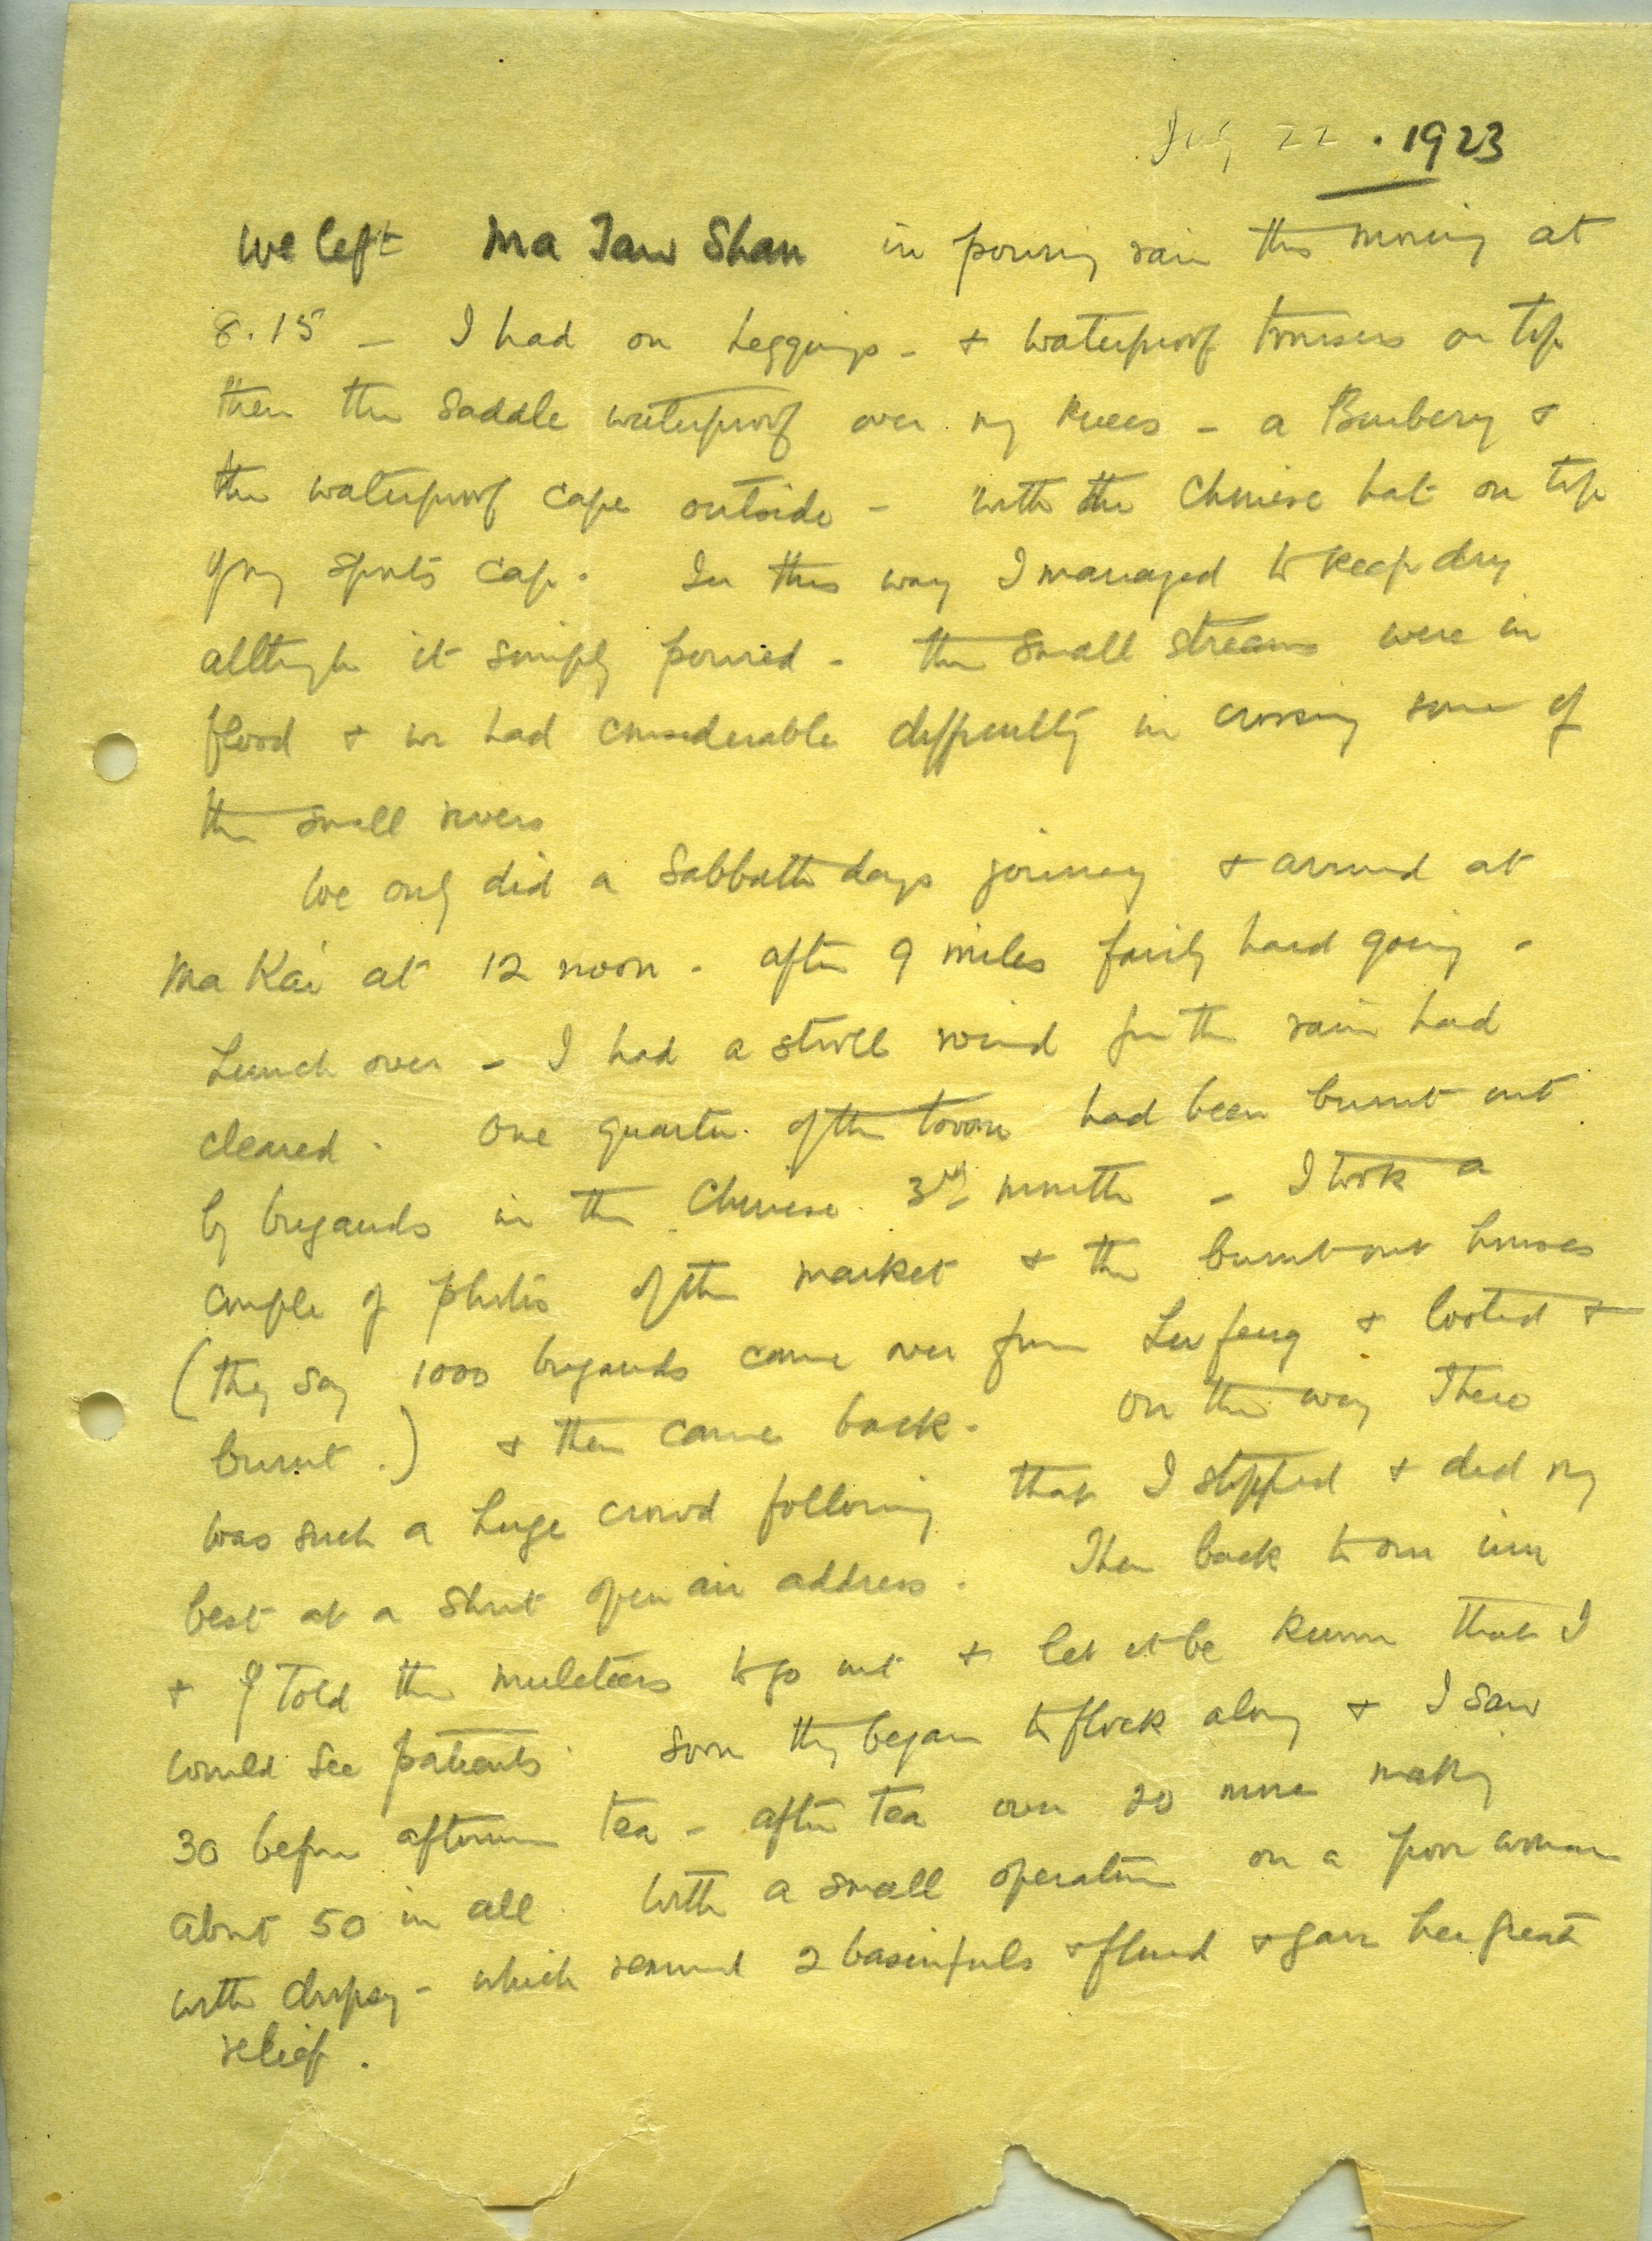 July 22. 1923
We left Ma Taw Shan in pouring rain this morning at
8.15 – I had on Leggings – & waterproof trousers on top
then the saddle waterproof over my knees – a Burbery &
the waterproof cape outside – with the Chinese hat on top
of my sports cap. In this way I managed to keep dry
although it simply poured – the small streams were in
flood & we had considerable difficulty in crossing some of
the small rivers
We only did a Sabbath days journey & arrived at
Ma Kai at 12 noon – after 9 miles fairly hard going –
Lunch over – I had a stroll round for the rain had
cleared. One quarter of the town had been burnt out
by brigands in the Chinese 3rd month – I took a
couple of photos of the market & the burnt out houses
(they say 1000 brigands came over from Lu feng & looted &
burnt.) & then came back. On the way There
was such a huge crowd following that I stopped & did my
best at a short open air address. Then back to our inn
& I told the muleteers to go out & let it be known that I
would see patients. Soon they began to flock along & I saw
30 before afternoon tea – after tea over 20 more making
about 50 in all. With a small operation on a poor woman
with dropsy – which removed 2 basinfuls of fluid & gave her great
relief.